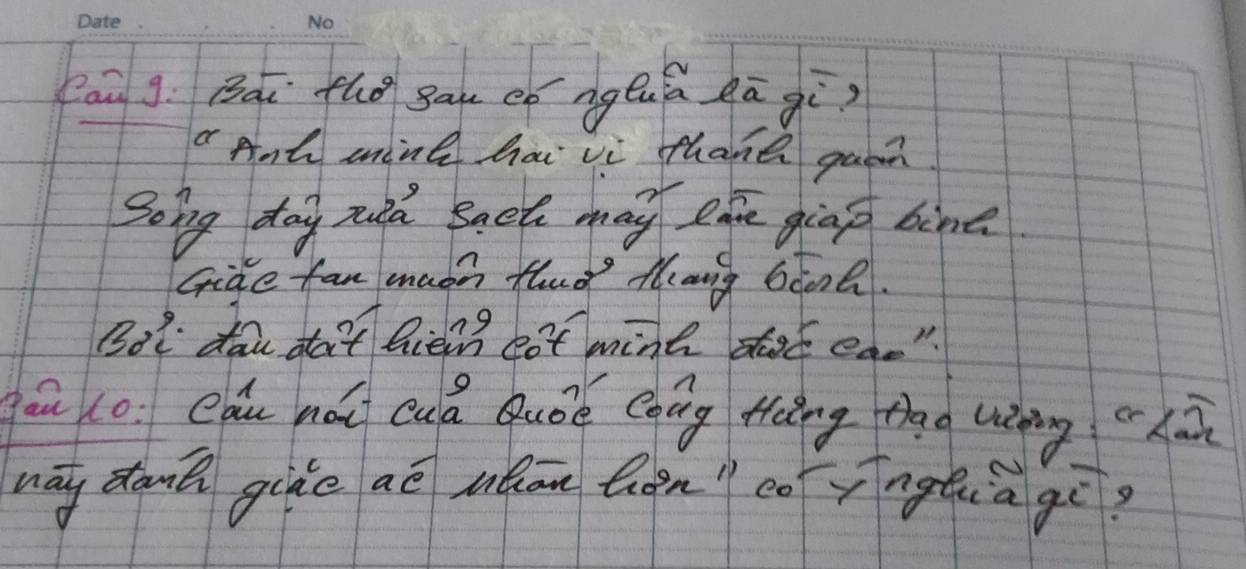 Date . . . No
Câu 9: Bài thơ sau có nghĩa là gì?
"Anh minh hai vị thánh quân.
Sông đây rửa sạch mấy lần giáp binh.
Giặc tan muôn thuở thăng bình.
Bởi đâu đất hiểm cốt mình đức cao".
Câu 10: Câu nói của Quốc Công Hưng Đạo Vương: "Lần
này đánh giặc ắc nhàn hơn" có ý nghĩa gì?